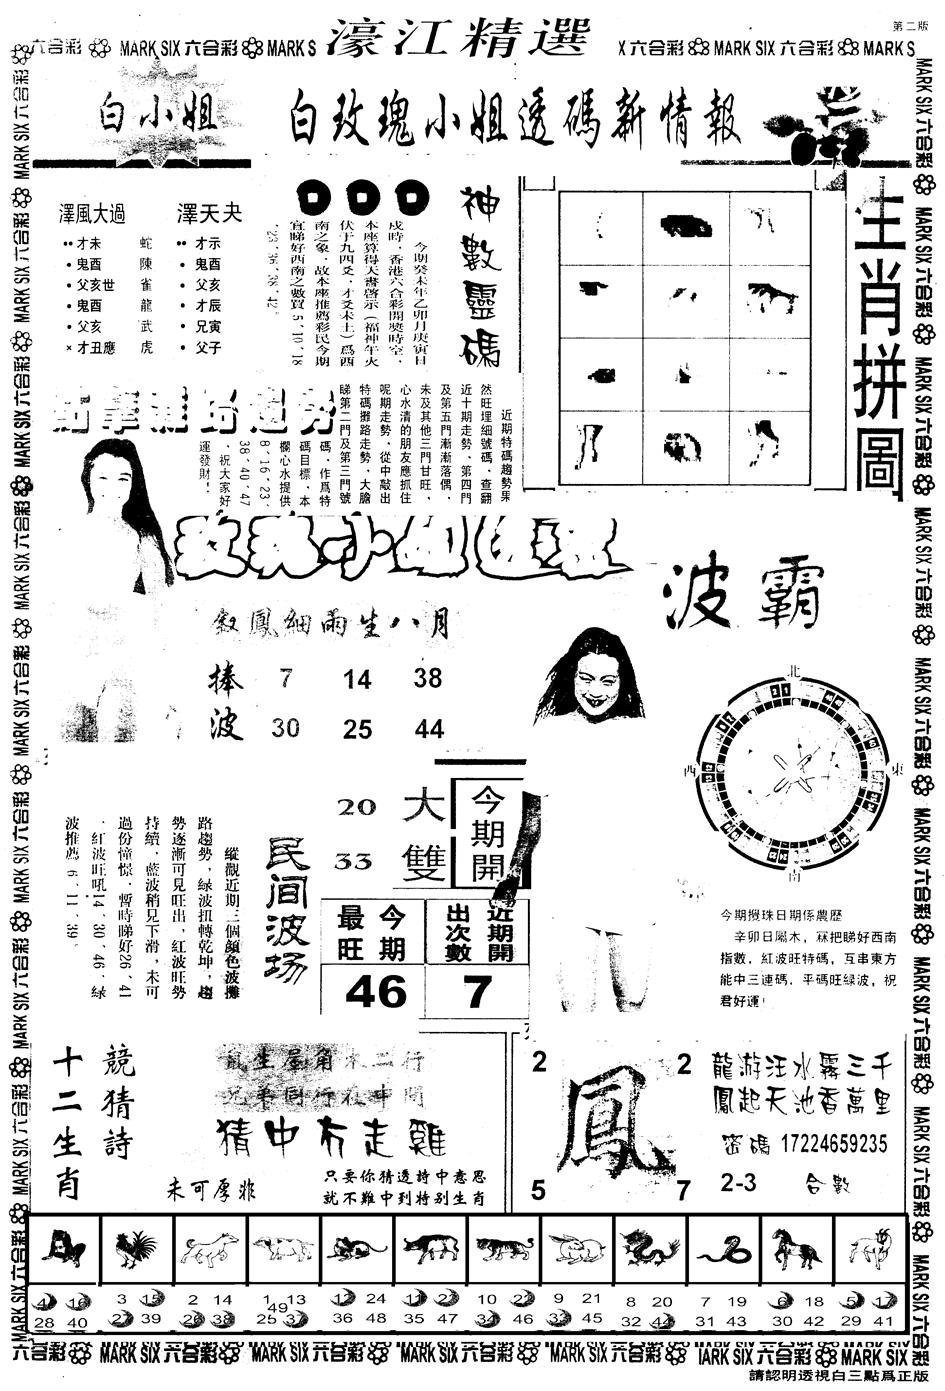 第二版
濠江精選
六合彩 MARK SIX 六合彩 MARK S
X 六合彩 MARK SIX 六合彩 MARK S
白小姐
白玫瑰小姐透碼新情報
澤風大過
才未 蛇
鬼酉 陳
父亥世 雀
鬼酉 龍
父亥 武
× 才丑應 虎
澤天夬
才示
鬼酉
父亥
才辰
兄寅
父子
神數靈碼
今期癸未年乙卯月庚寅日
戌時﹐香港六合彩開獎時空﹐
本座算得天書啓示（福神午火
伏于九四爻﹐才爻未土）爲酉
南之象﹐故本座推薦彩民今期
宜睇好西南之數買 5、10、18
、23、36、38、42。
生肖拼圖
近期特碼趨勢果
然旺埋細號碼﹐查翻
近十期走勢﹐第四門
及第五門漸漸落偶﹐
未及其他三門甘旺﹐
心水清的朋友應抓住
呢期走勢﹐從中敲出
特碼攤路走勢﹐大膽
睇第二門及第三門號
碼﹐作爲特
碼目標﹐本
欄心水提供
8、16、23、
38、40、47
﹐祝大家好
運發財！
鳳細雨生八月
捧波
7 14 38
30 25 44
波霸
北
西
東
南
縱觀近期三個顔色波攤
路趨勢﹐綠波扭轉乾坤﹐趨
勢逐漸可見旺出﹐紅波旺勢
持續﹐藍波稍見下滑﹐未可
過份憧憬﹐暫時睇好26、41
﹐紅波旺吼14、30、46﹐綠
波推薦 6、11、39。
民间波场
20 大
33 雙
今期開
今期最旺
近期開出次數
46
7
今期攪珠日期係農歷
辛卯日屬木，冧把睇好西南
指數，紅波旺特碼，互串東方
能中三連碼．平碼旺绿波，祝
君好運！
十二生肖
競猜詩
兄弟同行在中間
猜中冇走雞
未可厚非
只要你猜透詩中意思
就不難中到特别生肖
2 2
鳳
5 7
龍游汪水霧三千
鳳起天池香萬里
密碼 17224659235
2-3 合數
4 16 28 40
3 15 27 39
2 14 26 38
1 13 25 37 49
12 24 36 48
11 23 35 47
10 22 34 46
9 21 33 45
8 20 32 44
7 19 31 43
6 18 30 42
5 17 29 41
六合彩 MARK SIX 六合彩 MARK SIX 六合彩 MARK SIX 六合彩 MARK SIX 六合彩 IARK SIX 六合彩 MARK SIX
請認明透視白三點爲正版